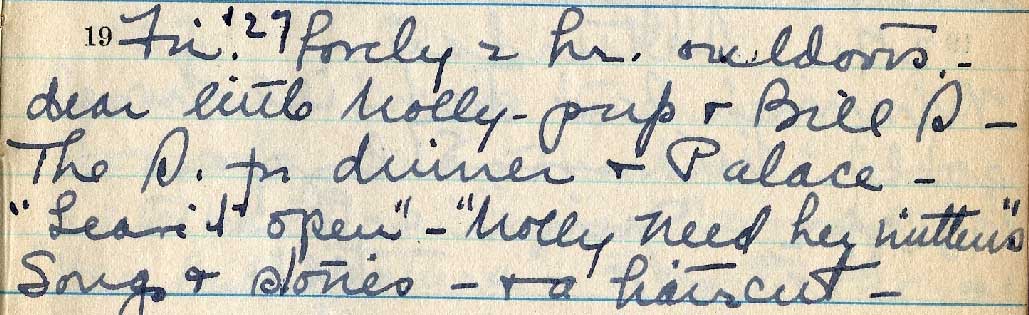 19 Fri. '27 Lovely 2 hr. outdoors. -
dear little Molly-pup + Bill D -
The D. for dinner + Palace -
"Leave it open" - "Molly need her mittens"
Songs + stories - + a haircut -